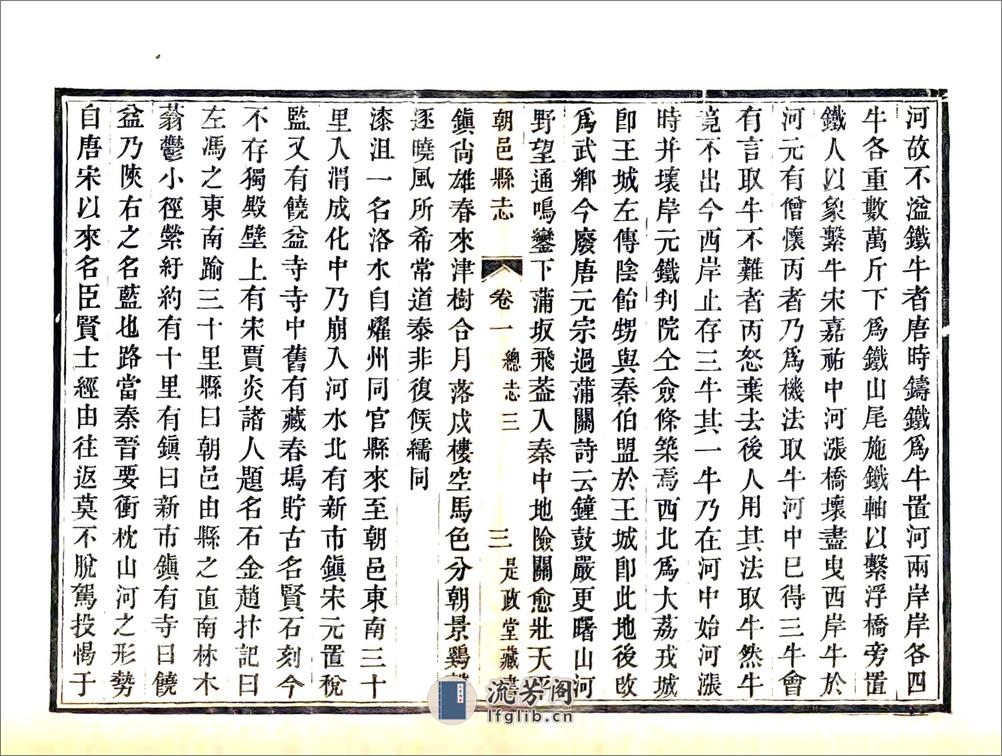 河故不溢鐵牛者唐時鑄鐵爲牛置河兩岸岸各四
牛各重數萬斤下爲鐵山尾施鐵軸以繫浮橋旁置
鐵人以象繫牛宋嘉祐中河漲橋壞盡曳西岸牛於
河元有僧懷丙者乃爲機法取牛河中巳得三牛會
有言取牛不難者丙怒棄去後人用其法取牛然牛
竟不出今西岸止存三牛其一牛乃在河中始河漲
時并壞岸元鐵判院仝僉條築焉西北爲大荔戎城
卽王城左傳陰飴甥與秦伯盟於王城卽此地後攺
爲武鄉今廢唐元宗過蒲關詩云鐘鼓嚴更曙山河
野望通鳴鑾下蒲坂飛葢入秦中地險關愈壯天平
朝邑縣志 卷一 總志三 三 是政堂藏
鎭尙雄春來津樹合月落戍樓空馬色分朝景鷄
逐曉風所希常道泰非復候繻同
漆沮一名洛水自燿州同官縣來至朝邑東南三十
里入渭成化中乃崩入河水北有新市鎭宋元置稅
監又有饒益寺寺中舊有藏春塢貯古名賢石刻今
不存獨殿壁上有宋賈炎諸人題名石金趙抃記曰
左馮之東南踰三十里縣曰朝邑由縣之直南林木
蓊鬱小徑縈紆約有十里有鎭曰新市鎭有寺曰饒
益乃陝右之名藍也路當秦晉要衝枕山河之形勢
自唐宋以來名臣賢士經由往返莫不脫駕投愒于
流芳阁
lfglib.cn